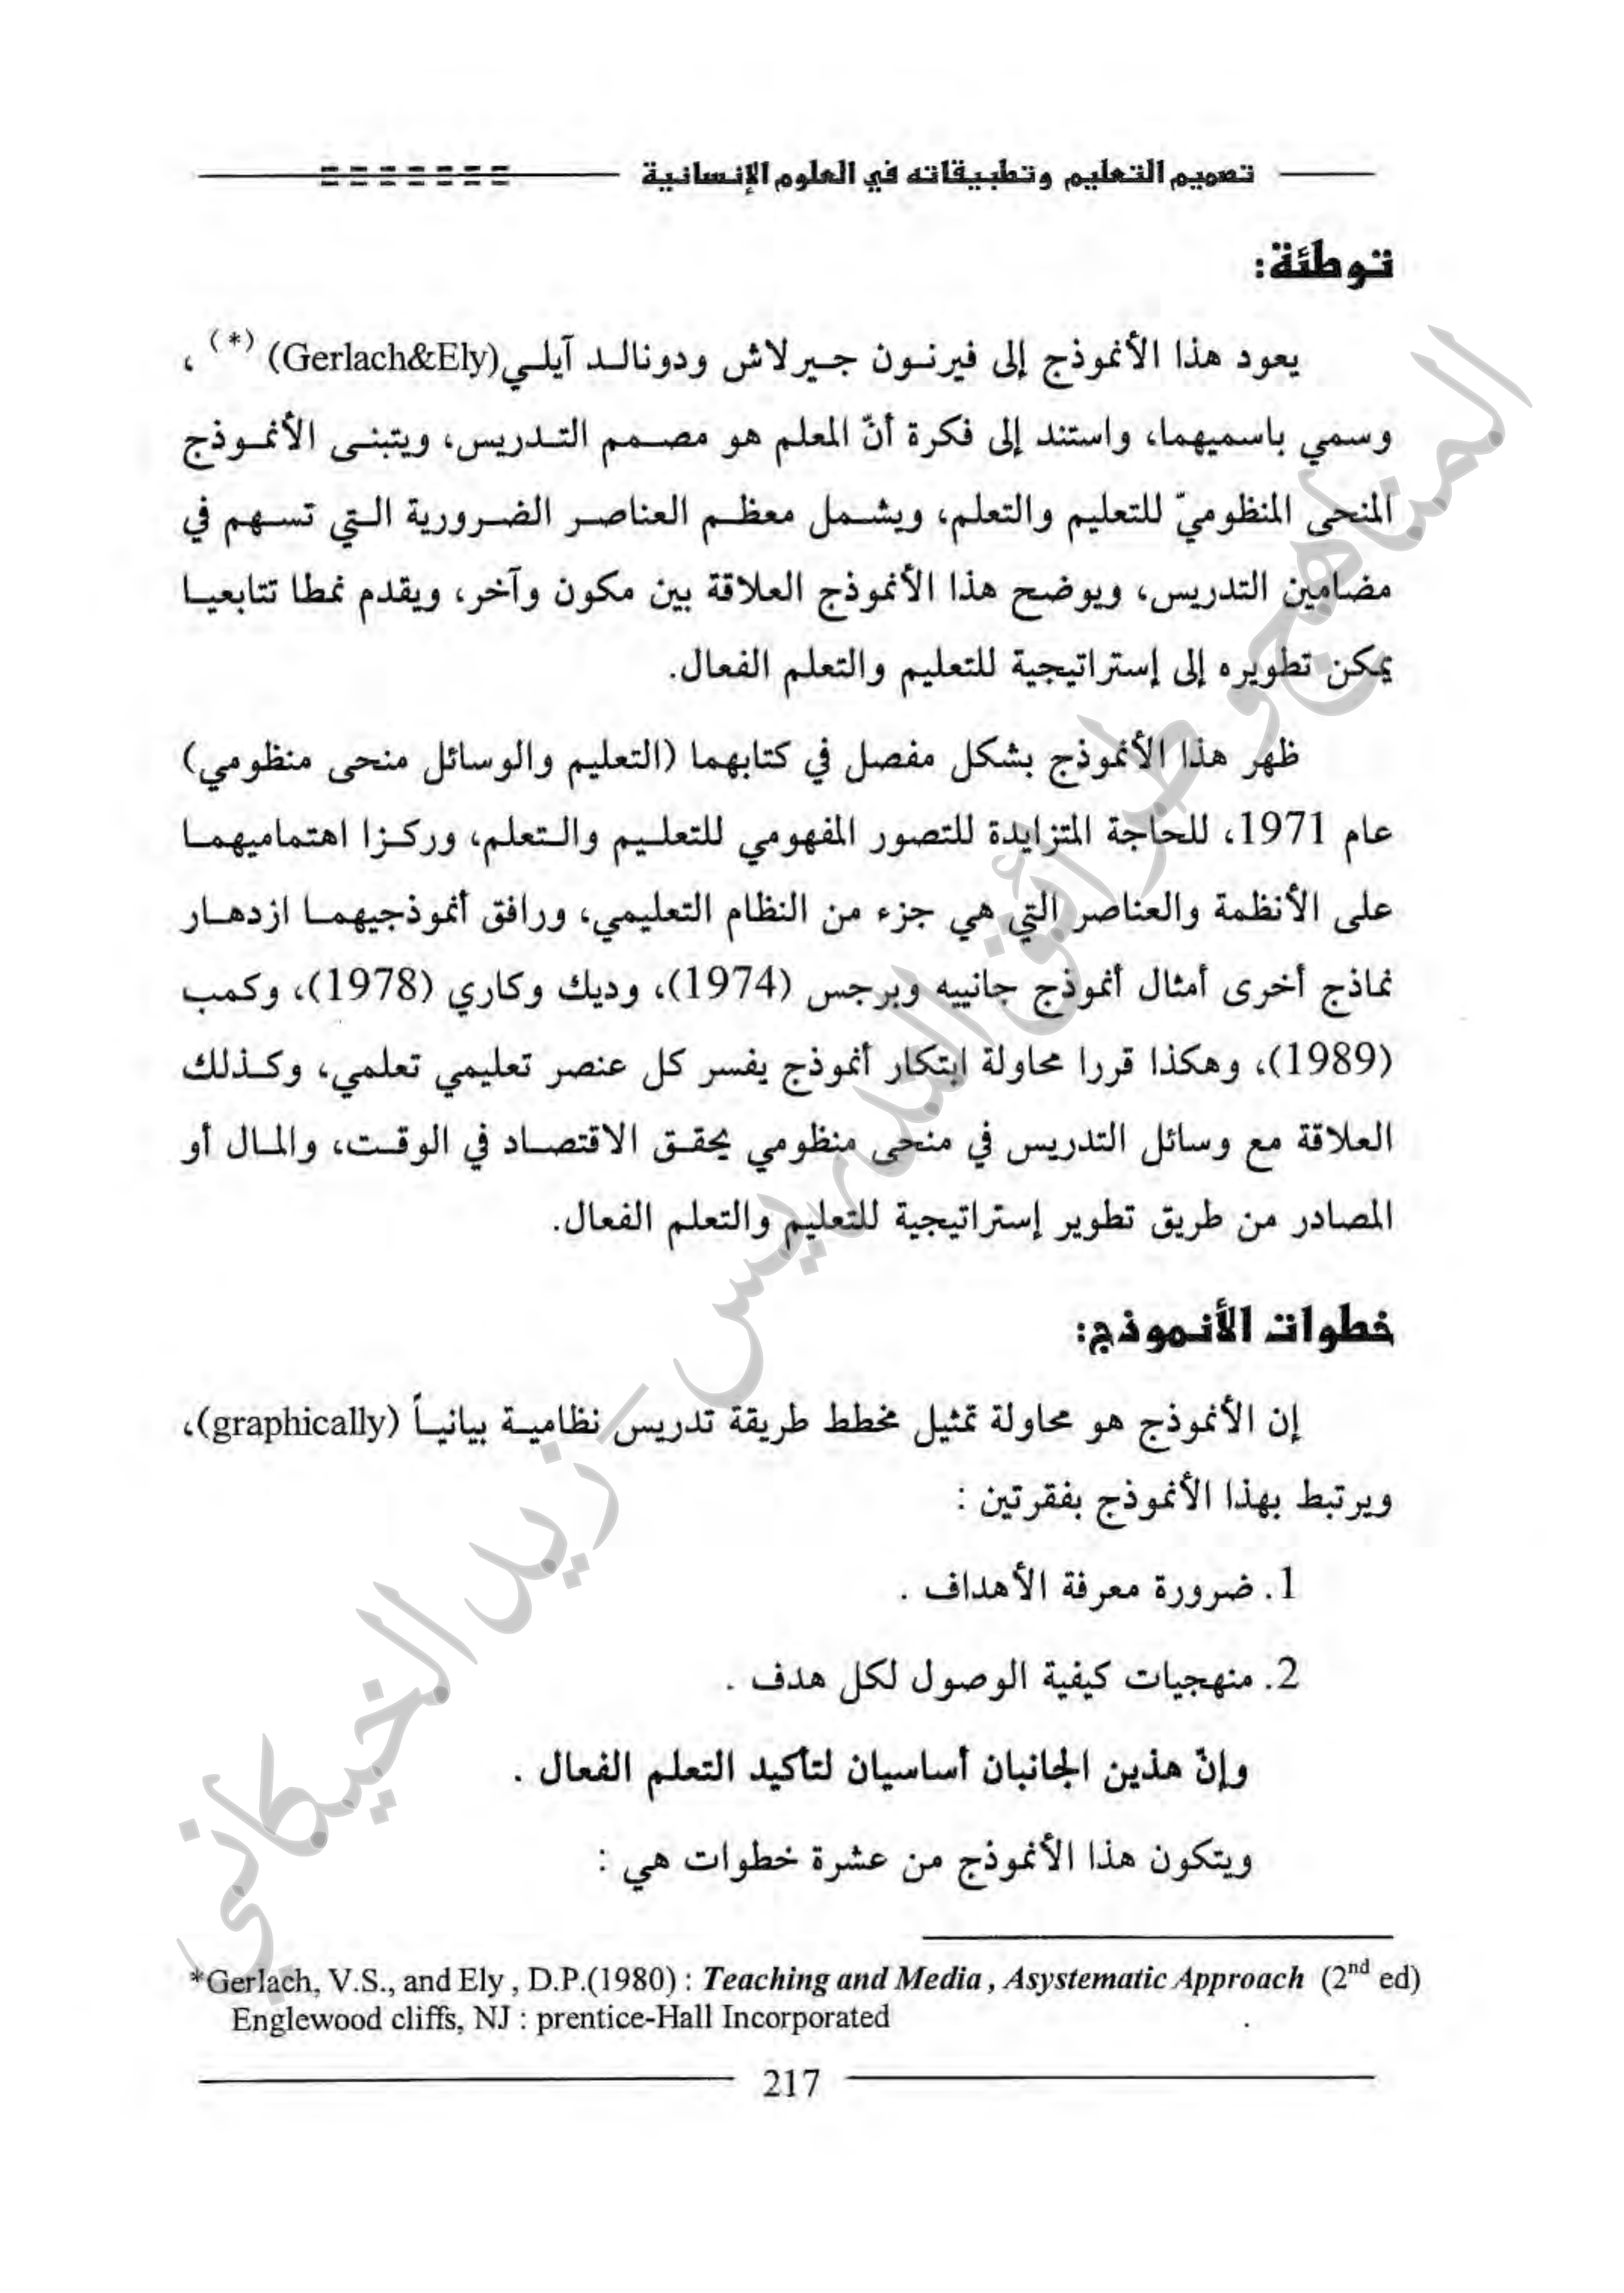 تصميم التعليم وتطبيقاته في العلوم الإنسانية
توطئة:
يعود هذا الأنموذج إلى فيرنون جيرلاش ودونالد آيلي(Gerlach&Ely) (*) ،
وسمي باسميهما، واستند إلى فكرة أنّ المعلم هو مصمم التدريس، ويتبنى الأنموذج
المنحى المنظوميّ للتعليم والتعلم، ويشمل معظم العناصر الضرورية التي تسهم في
مضامين التدريس، ويوضح هذا الأنموذج العلاقة بين مكون وآخر، ويقدم نمطا تتابعيا
يمكن تطويره إلى إستراتيجية للتعليم والتعلم الفعال.
ظهر هذا الأنموذج بشكل مفصل في كتابهما (التعليم والوسائل منحى منظومي)
عام 1971، للحاجة المتزايدة للتصور المفهومي للتعليم والتعلم، وركزا اهتماميهما
على الأنظمة والعناصر التي هي جزء من النظام التعليمي، ورافق أنموذجيهما ازدهار
نماذج أخرى أمثال أنموذج جانييه وبرجس (1974)، وديك وكاري (1978)، وكمب
(1989)، وهكذا قررا محاولة ابتكار أنموذج يفسر كل عنصر تعليمي تعلمي، وكذلك
العلاقة مع وسائل التدريس في منحى منظومي يحقق الاقتصاد في الوقت، والمال أو
المصادر من طريق تطوير إستراتيجية للتعليم والتعلم الفعال.
خطوات الأنموذج:
إن الأنموذج هو محاولة تمثيل مخطط طريقة تدريس نظامية بيانياً (graphically)،
ويرتبط بهذا الأنموذج بفقرتين :
1. ضرورة معرفة الأهداف .
2. منهجيات كيفية الوصول لكل هدف .
وإنّ هذين الجانبان أساسيان لتأكيد التعلم الفعال .
ويتكون هذا الأنموذج من عشرة خطوات هي :
*Gerlach, V.S., and Ely , D.P.(1980) : Teaching and Media , Asystematic Approach (2nd ed)
Englewood cliffs, NJ : prentice-Hall Incorporated .
217
المناهج وطرائق التدريس - زيد الخيكاني